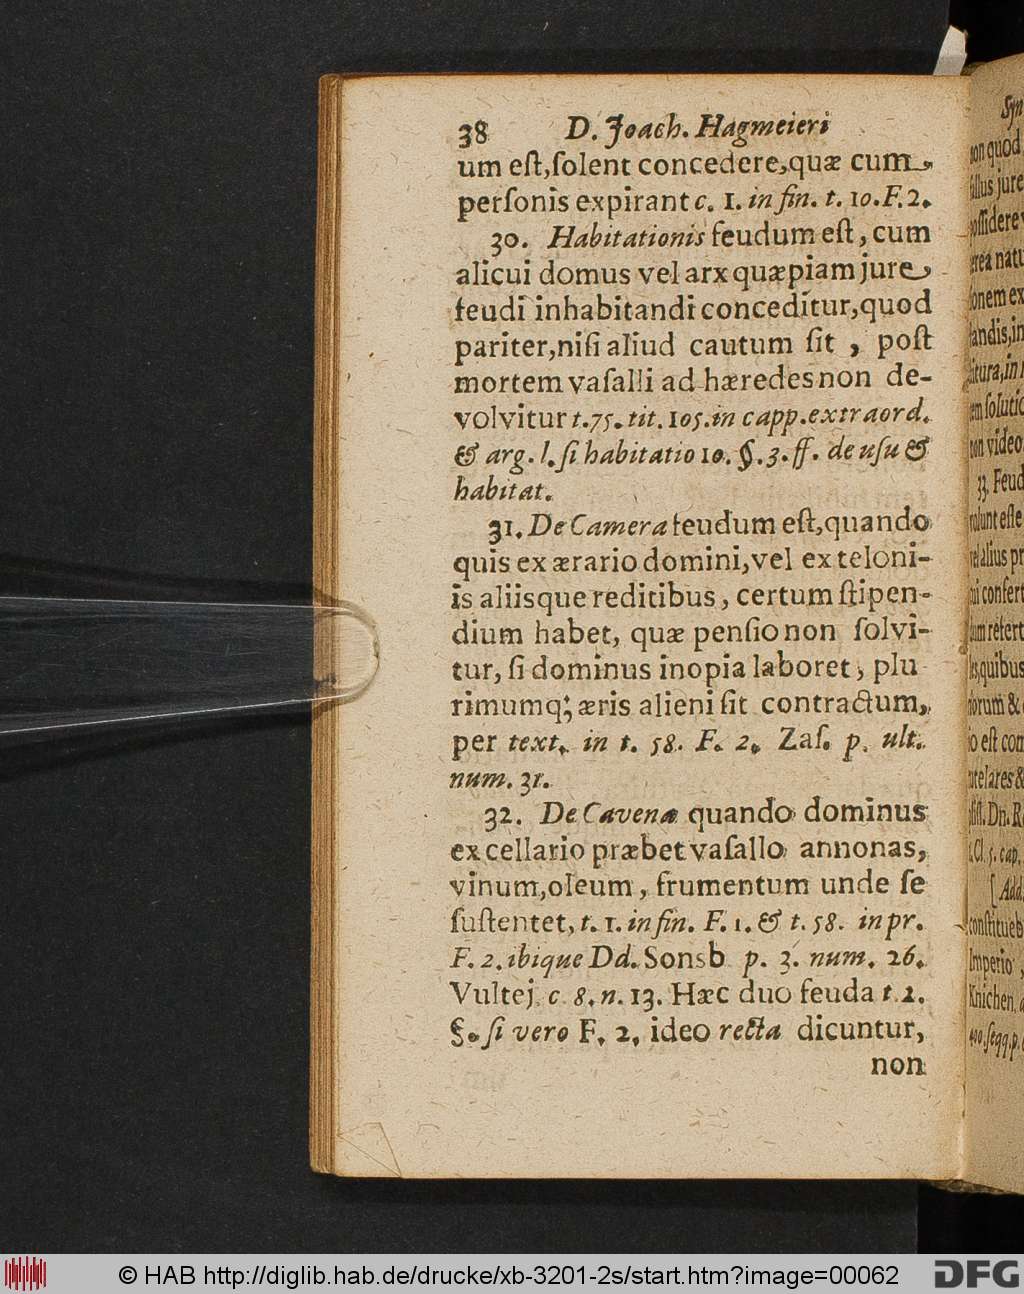 38 D. Joach. Hagmeieri
um eſt, ſolent concedere, quæ cum
perſonis expirant c. 1. in fin. t. 10. F. 2.
30. Habitationis feudum eſt, cum
alicui domus vel arx quæpiam jure
feudi inhabitandi conceditur, quod
pariter, niſi aliud cautum ſit, poſt
mortem vaſalli ad hæredes non de-
volvitur t. 75. tit. 105. in capp. extraord.
& arg. l. ſi habitatio 10. §. 3. ff. de uſu &
habitat.
31. De Camera feudum eſt, quando
quis ex ærario domini, vel ex teloni-
is aliisque reditibus, certum ſtipen-
dium habet, quæ penſio non ſolvi-
tur, ſi dominus inopia laboret, plu
rimumq; æris alieni ſit contractum,
per text. in t. 58. F. 2. Zaſ. p. ult.
num. 31.
32. De Cavena quando dominus
ex cellario præbet vaſallo annonas,
vinum, oleum, frumentum unde ſe
ſuſtentet, t. 1. in fin. F. 1. & t. 58. in pr.
F. 2. ibique Dd. Sonsb p. 3. num. 26.
Vultej. c. 8. n. 13. Hæc duo feuda t. 2.
§. ſi vero F. 2. ideo recta dicuntur,
non
Syn
non quod
jure
natu
ex
in
video
33. Feud
eſſe
alius pr
confert
refert
quibus
&
eſt com
Dn. R
Cl. 5. cap.
[Add.
conſtitueb
Imperio,
Knichen.
400. ſeqq. p.
© HAB http://diglib.hab.de/drucke/xb-3201-2s/start.htm?image=00062
DFG